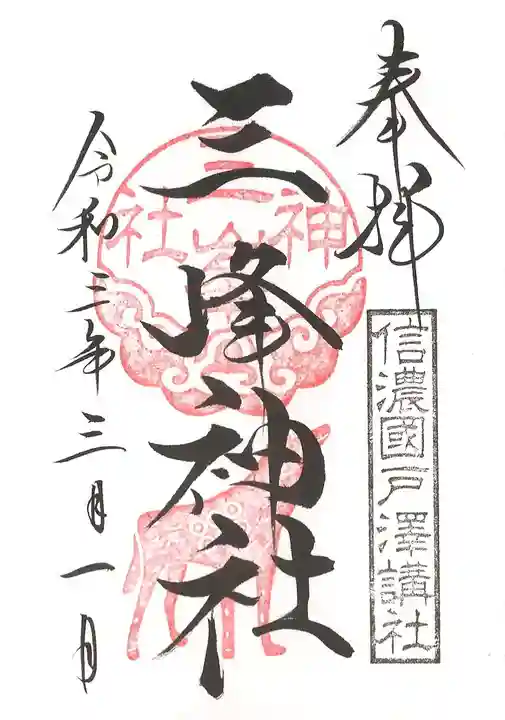 奉拝
信濃國戸澤講社
三峰神社
三峯神社
令和三年三月一日